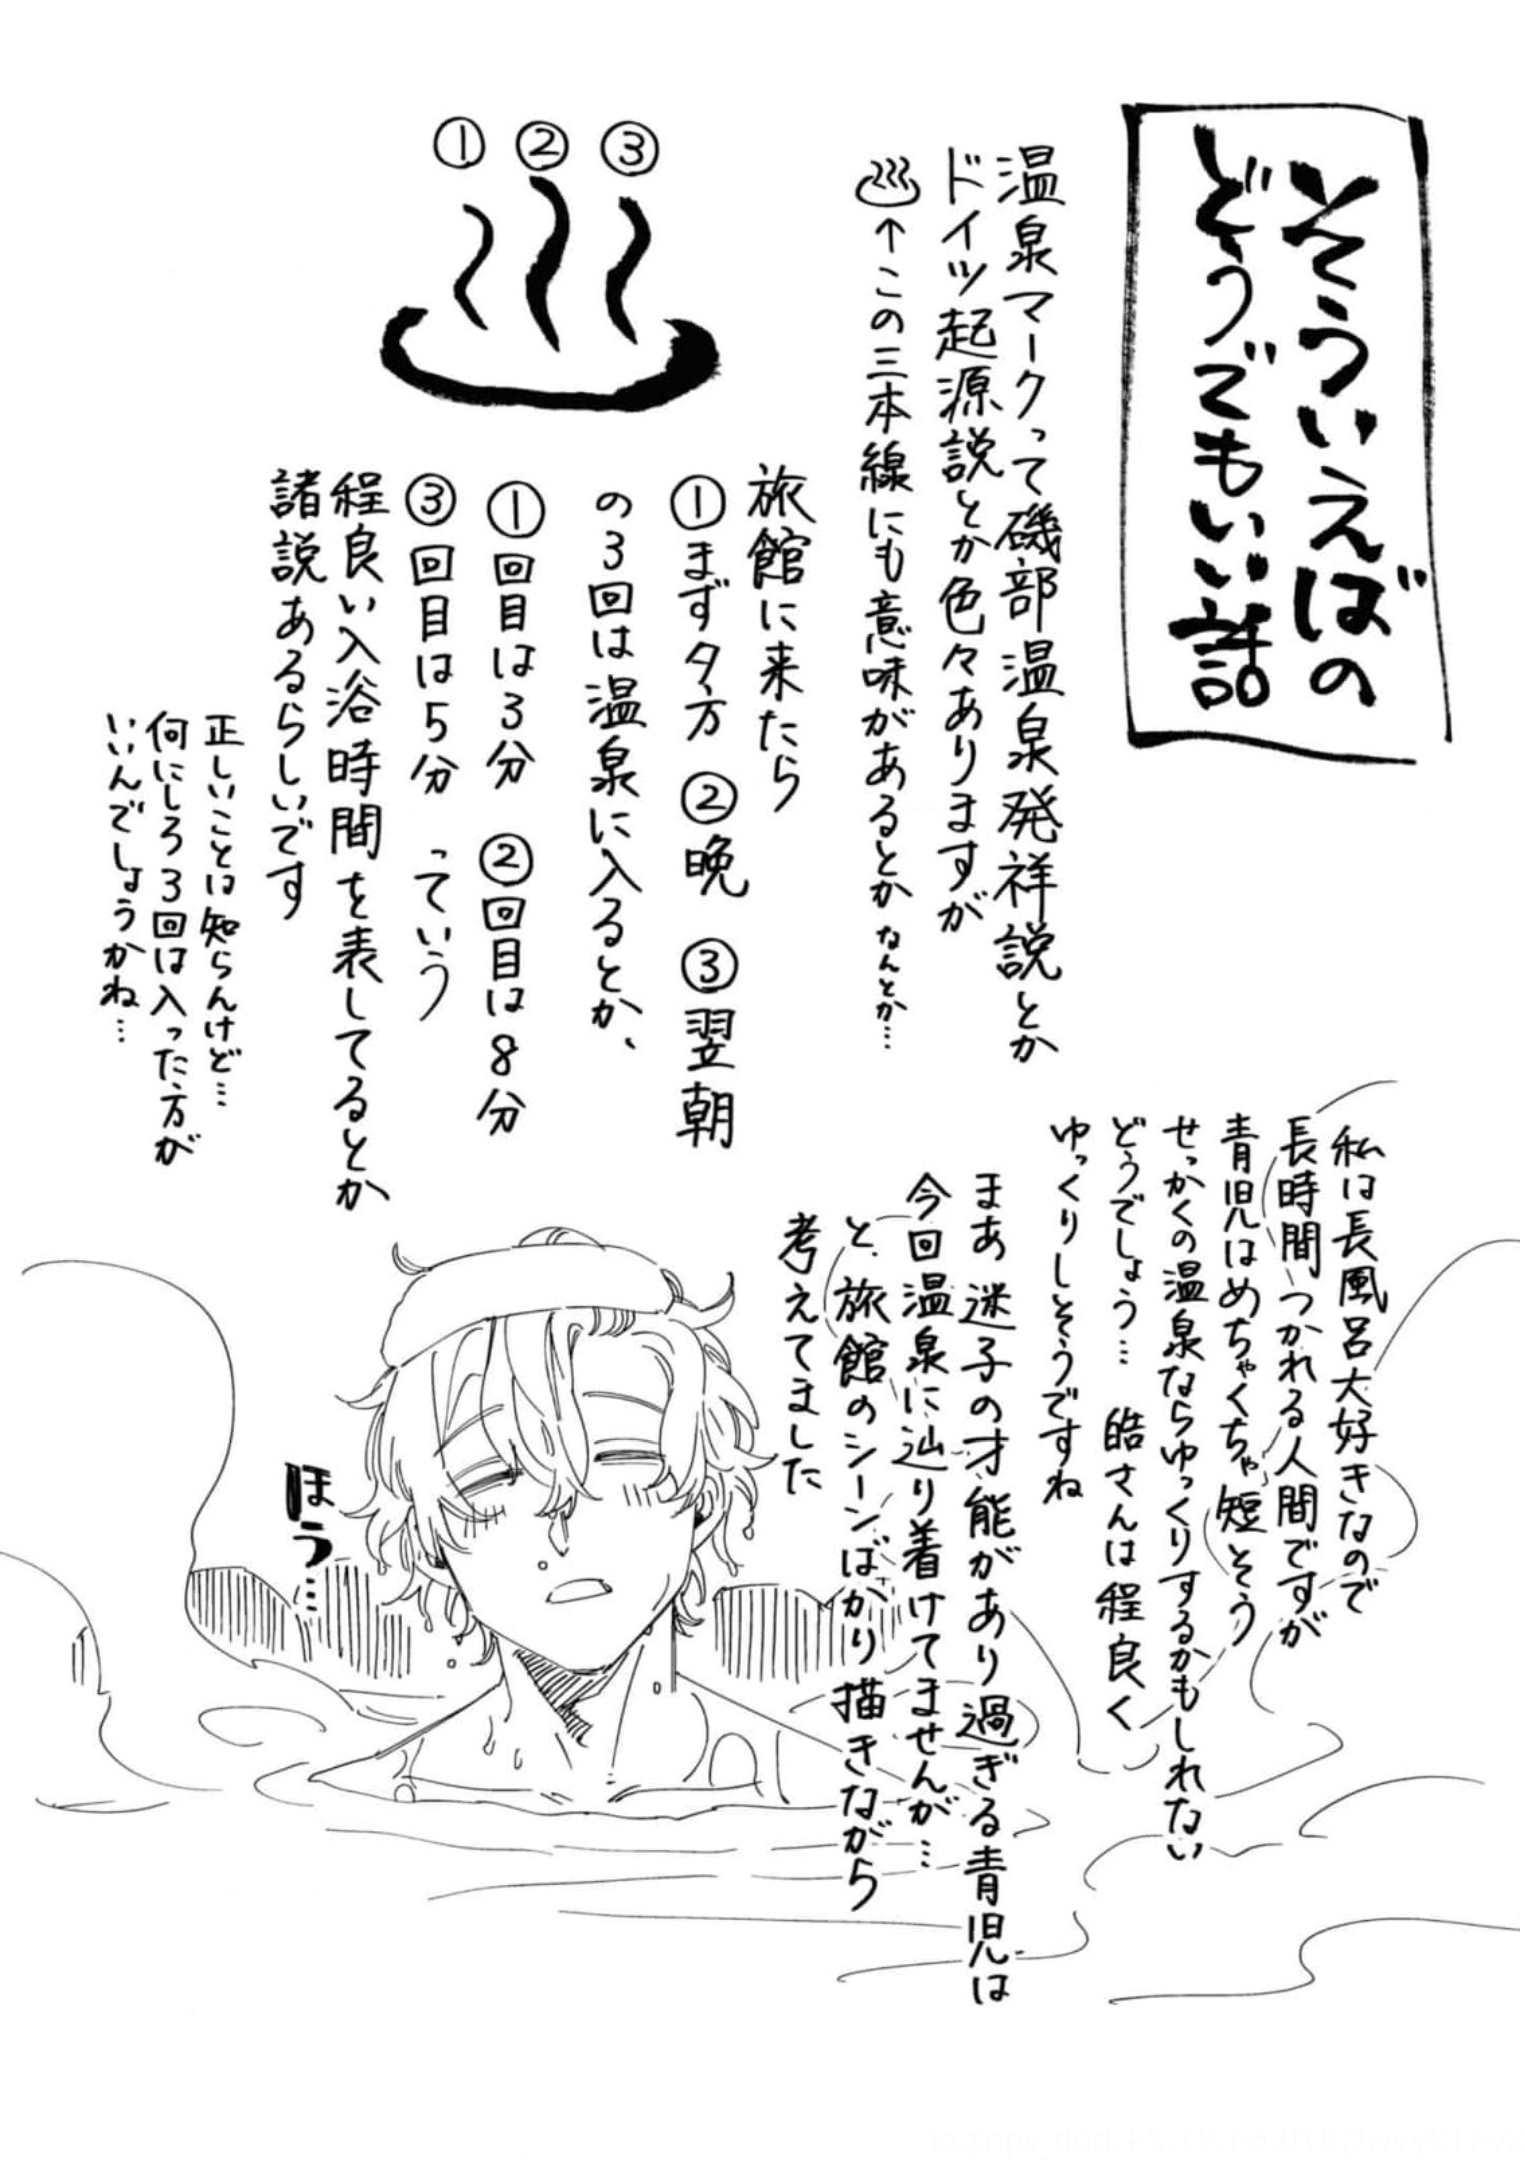 そういえばの
どうでもいい話
温泉マークって磯部温泉発祥説とか
ドイツ起源説とか色々ありますが
♨↑この三本線にも意味があるとかなんとか…
①②③
旅館に来たら
①まず夕方 ②晩 ③翌朝
の3回は温泉に入るとか、
①回目は3分 ②回目は8分
③回目は5分 っていう
程良い入浴時間を表してるとか
諸説あるらしいです
正しいことは知らんけど…
何にしろ3回は入った方が
いいんでしょうかね…
私は長風呂大好きなので
長時間つかれる人間ですが
青児はめちゃくちゃ短そう
せっかくの温泉ならゆっくりするかもしれない
どうでしょう… 皓さんは程良く
ゆっくりしそうですね
まあ迷子の才能があり過ぎる青児は
今回温泉に辿り着けてませんが…
と、旅館のシーンばかり描きながら
考えてました
ほう…